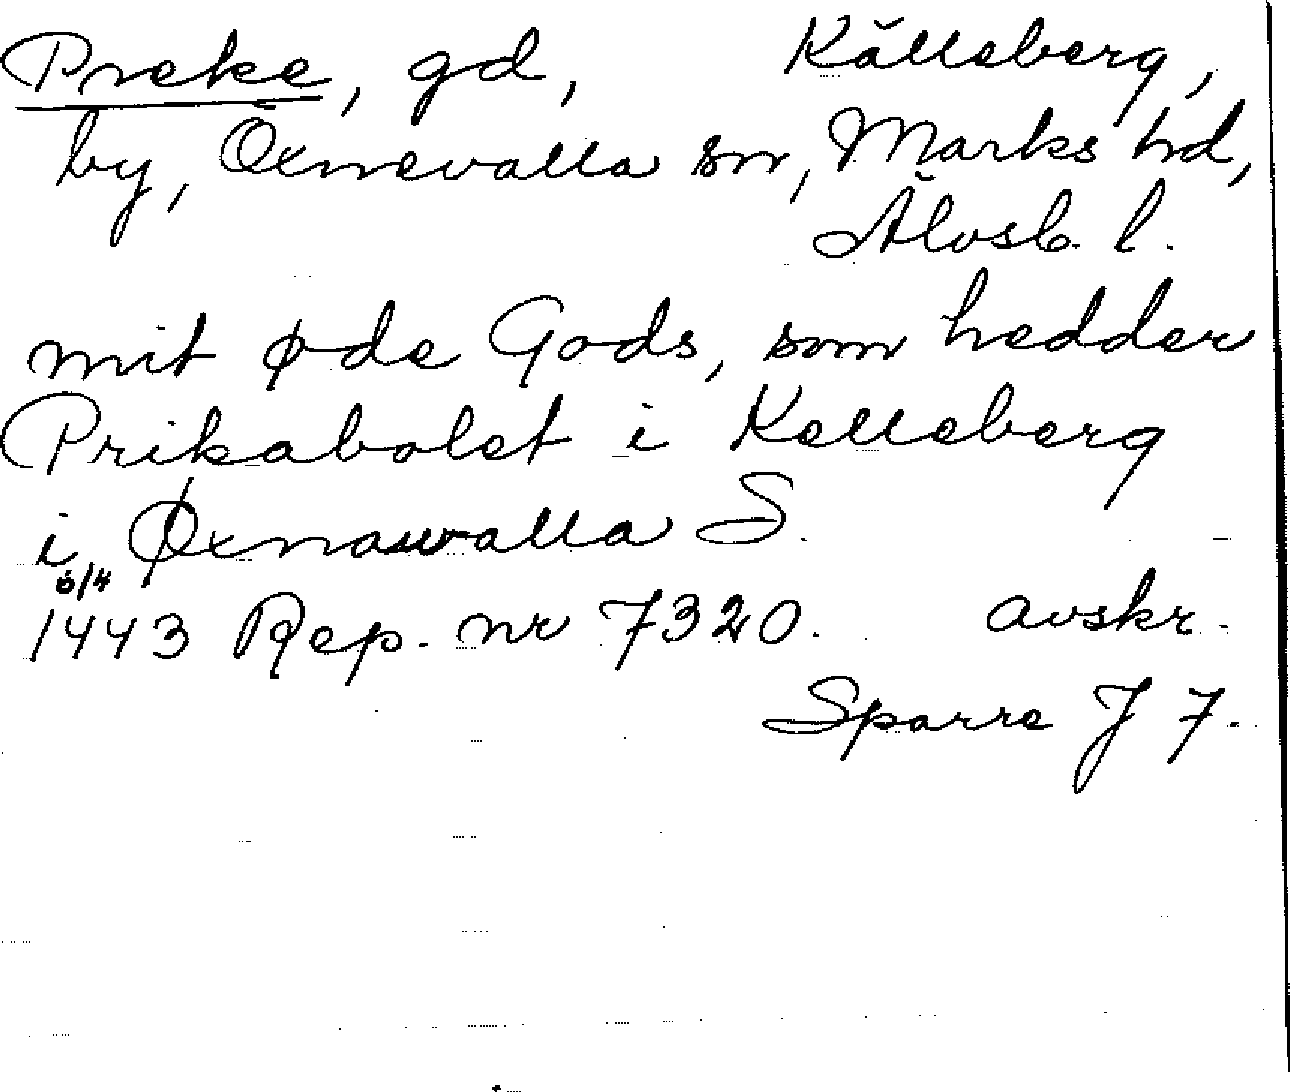 Preke, gd, Källeberg,
by, Öxnevalla sn, Marks hd,
Älvsb. l.
mit øde Gods, som hedder
Prikabolet i Kelleberg
i Øxnawalla S.
6/4
1443 Rep. nr 7320. avskr.
Sparre J 7.